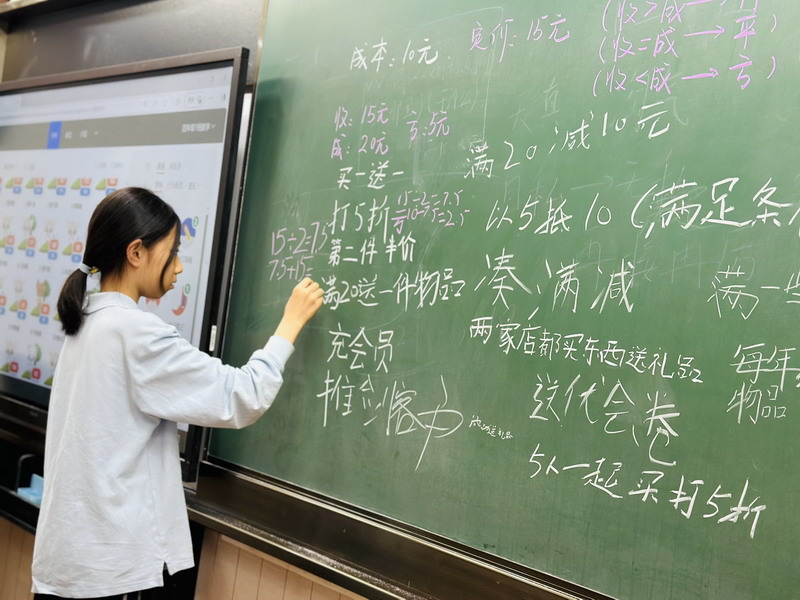 成本：10元
定价：15元
(收>成→
(收=成→平)
(收<成→亏)
收：15元
成：20元 亏：5元
买一送一
打5折
15÷2=7.5
10-7.5=2.5
第二件半价
15÷2=7.5
7.5+15=
满20送一件物品
充会员
满20减10元
以5抵10(满足条
凑满减
满一些
两家店都买东西送礼品
每年
物品
送优会卷
5人一起买打5折